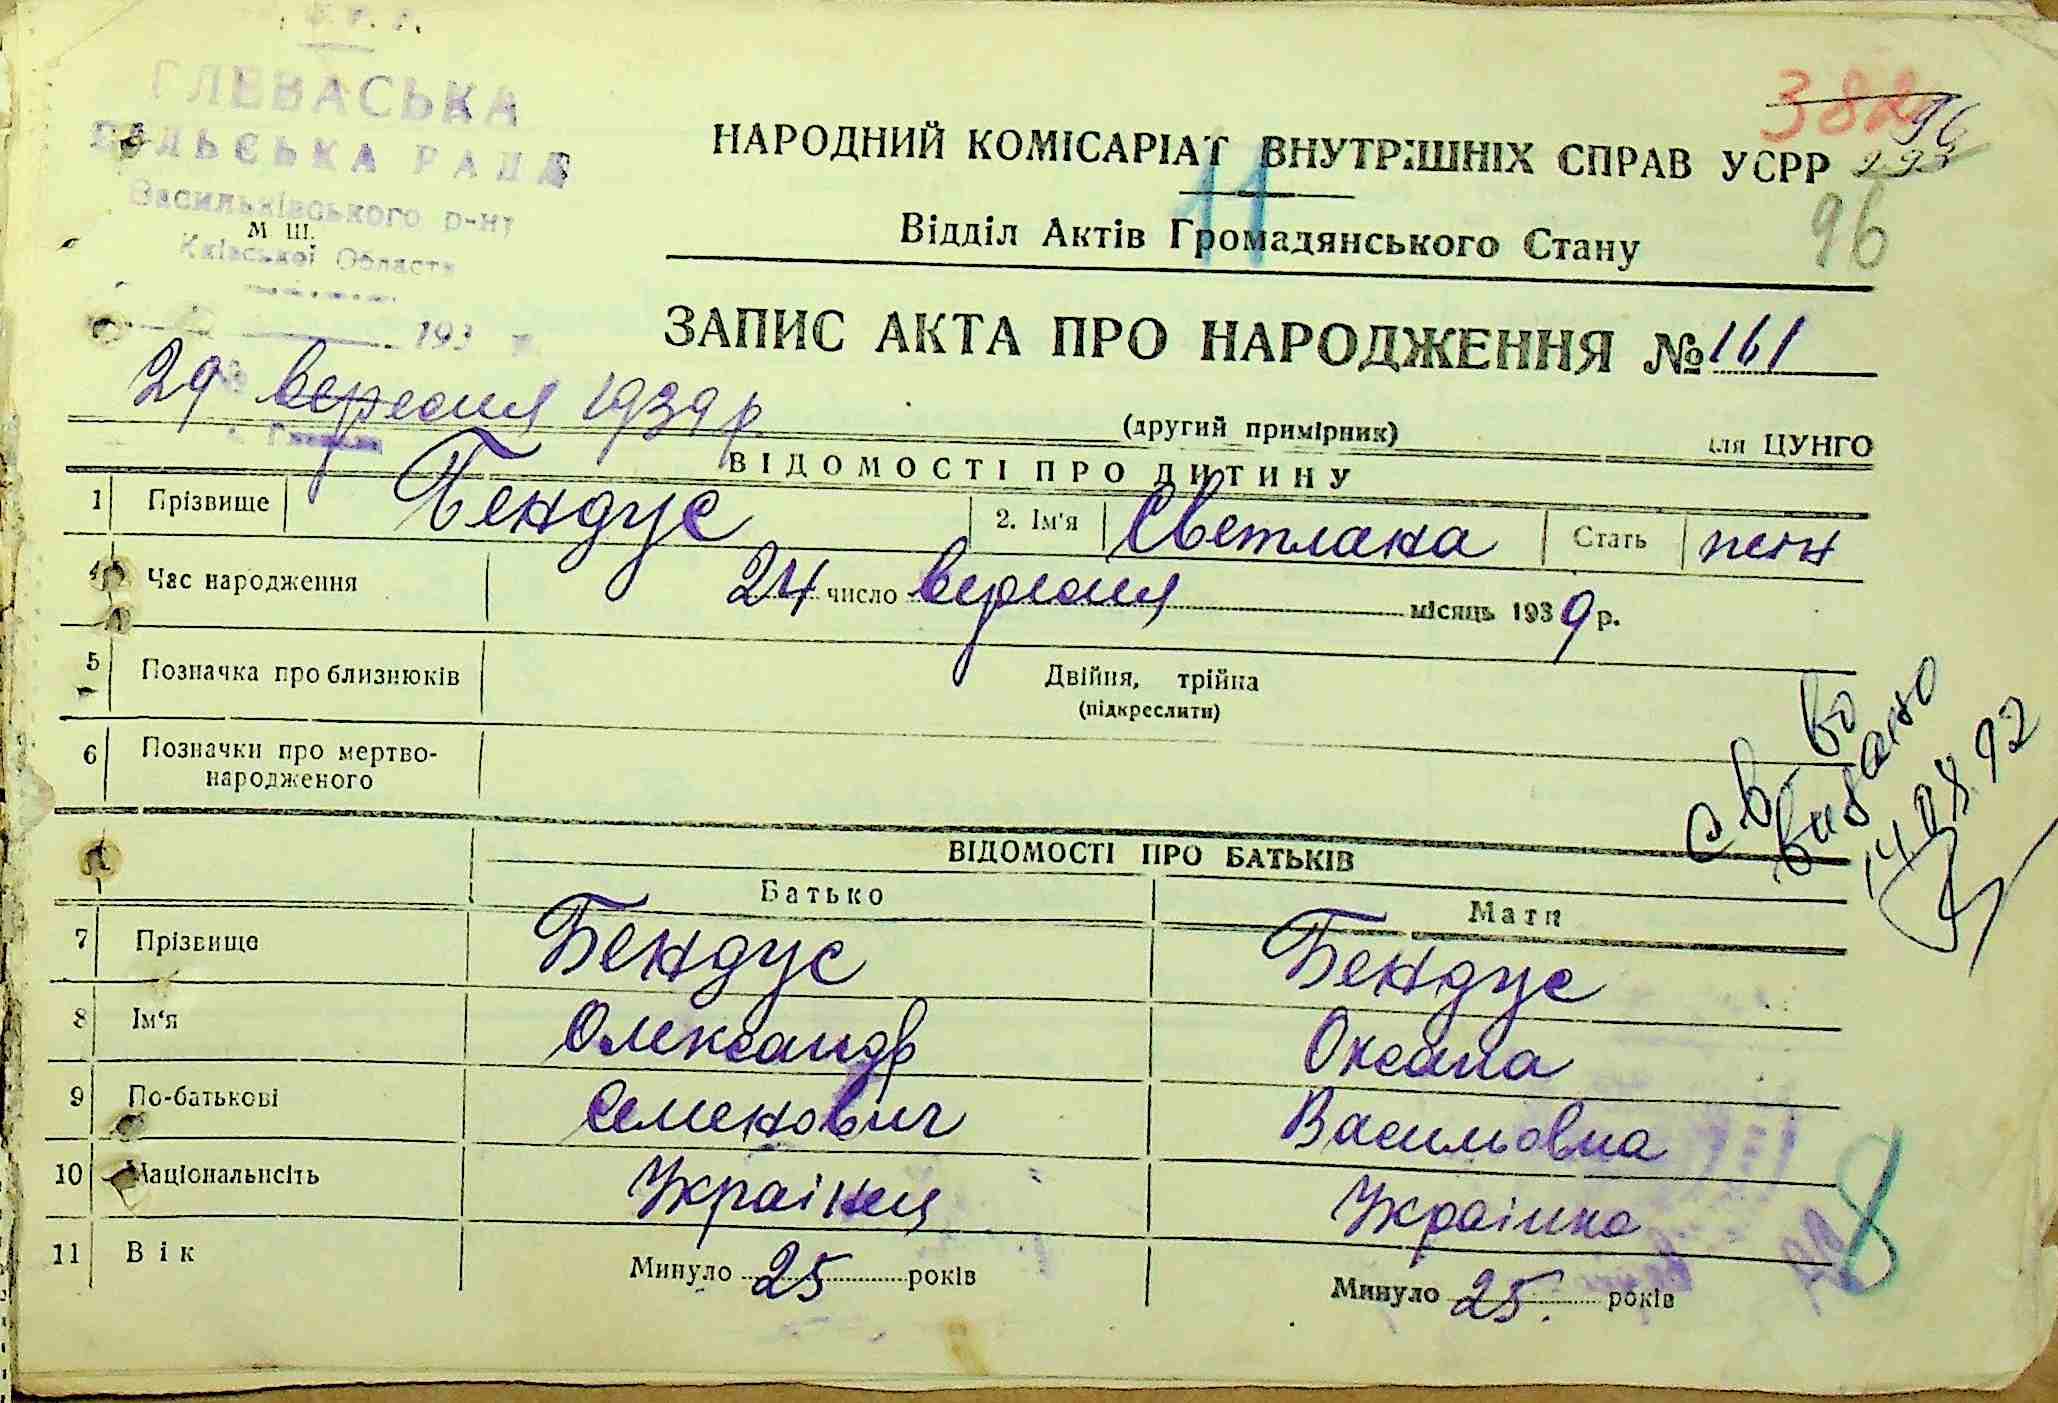 ГЛЕВАСЬКА
СІЛЬСЬКА РАДА
Васильківського р-ну
М Ш.
Київської Области
193
382
96
293
96
НАРОДНИЙ КОМІСАРІАТ ВНУТРІШНІХ СПРАВ УСРР
11
Відділ Актів Громадянського Стану
ЗАПИС АКТА ПРО НАРОДЖЕННЯ № 161
29 вересня 1939 р
(другий примірник) для ЦУНГО
ВІДОМОСТІ ПРО ДИТИНУ
1 Прізвище Бендус 2. Ім'я Светлана Стать жен
4 Час народження 24 число вересня місяць 1939 р.
5 Позначка про близнюків Двійня, трійна
(підкреслити)
6 Позначки про мертво-
народженого
с.в-во
видано
14.08.92
ВІДОМОСТІ ПРО БАТЬКІВ
Батько Мати
7 Прізвище Бендус Бендус
8 Ім'я Олександр Оксана
9 По-батькові Семенович Васильовна
10 Національність Українец Українка
11 Вік Минуло 25 років Минуло 25. років
8